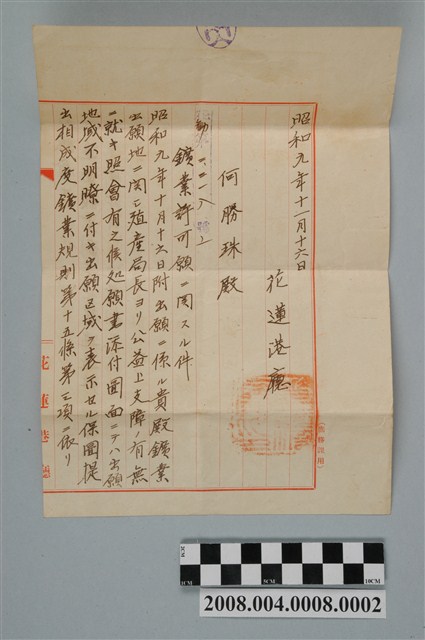 昭和九年十一月十六日
花蓮港廳
何勝珠殿
勸
鑛業許可願ニ関スル件
昭和九年十月十六日附出願ニ係ル貴殿鑛業
出願地ニ関シ殖産局長ヨリ公益上支障ノ有無
ニ就キ照會有之候処願書添付圖面ニテハ出願
地域不明瞭ニ付キ出願区域ヲ表示セル保圖提
出相成度鑛業規則第十五條第三項ニ依リ
花蓮港廳
5CM
10CM
2008.004.0008.0002